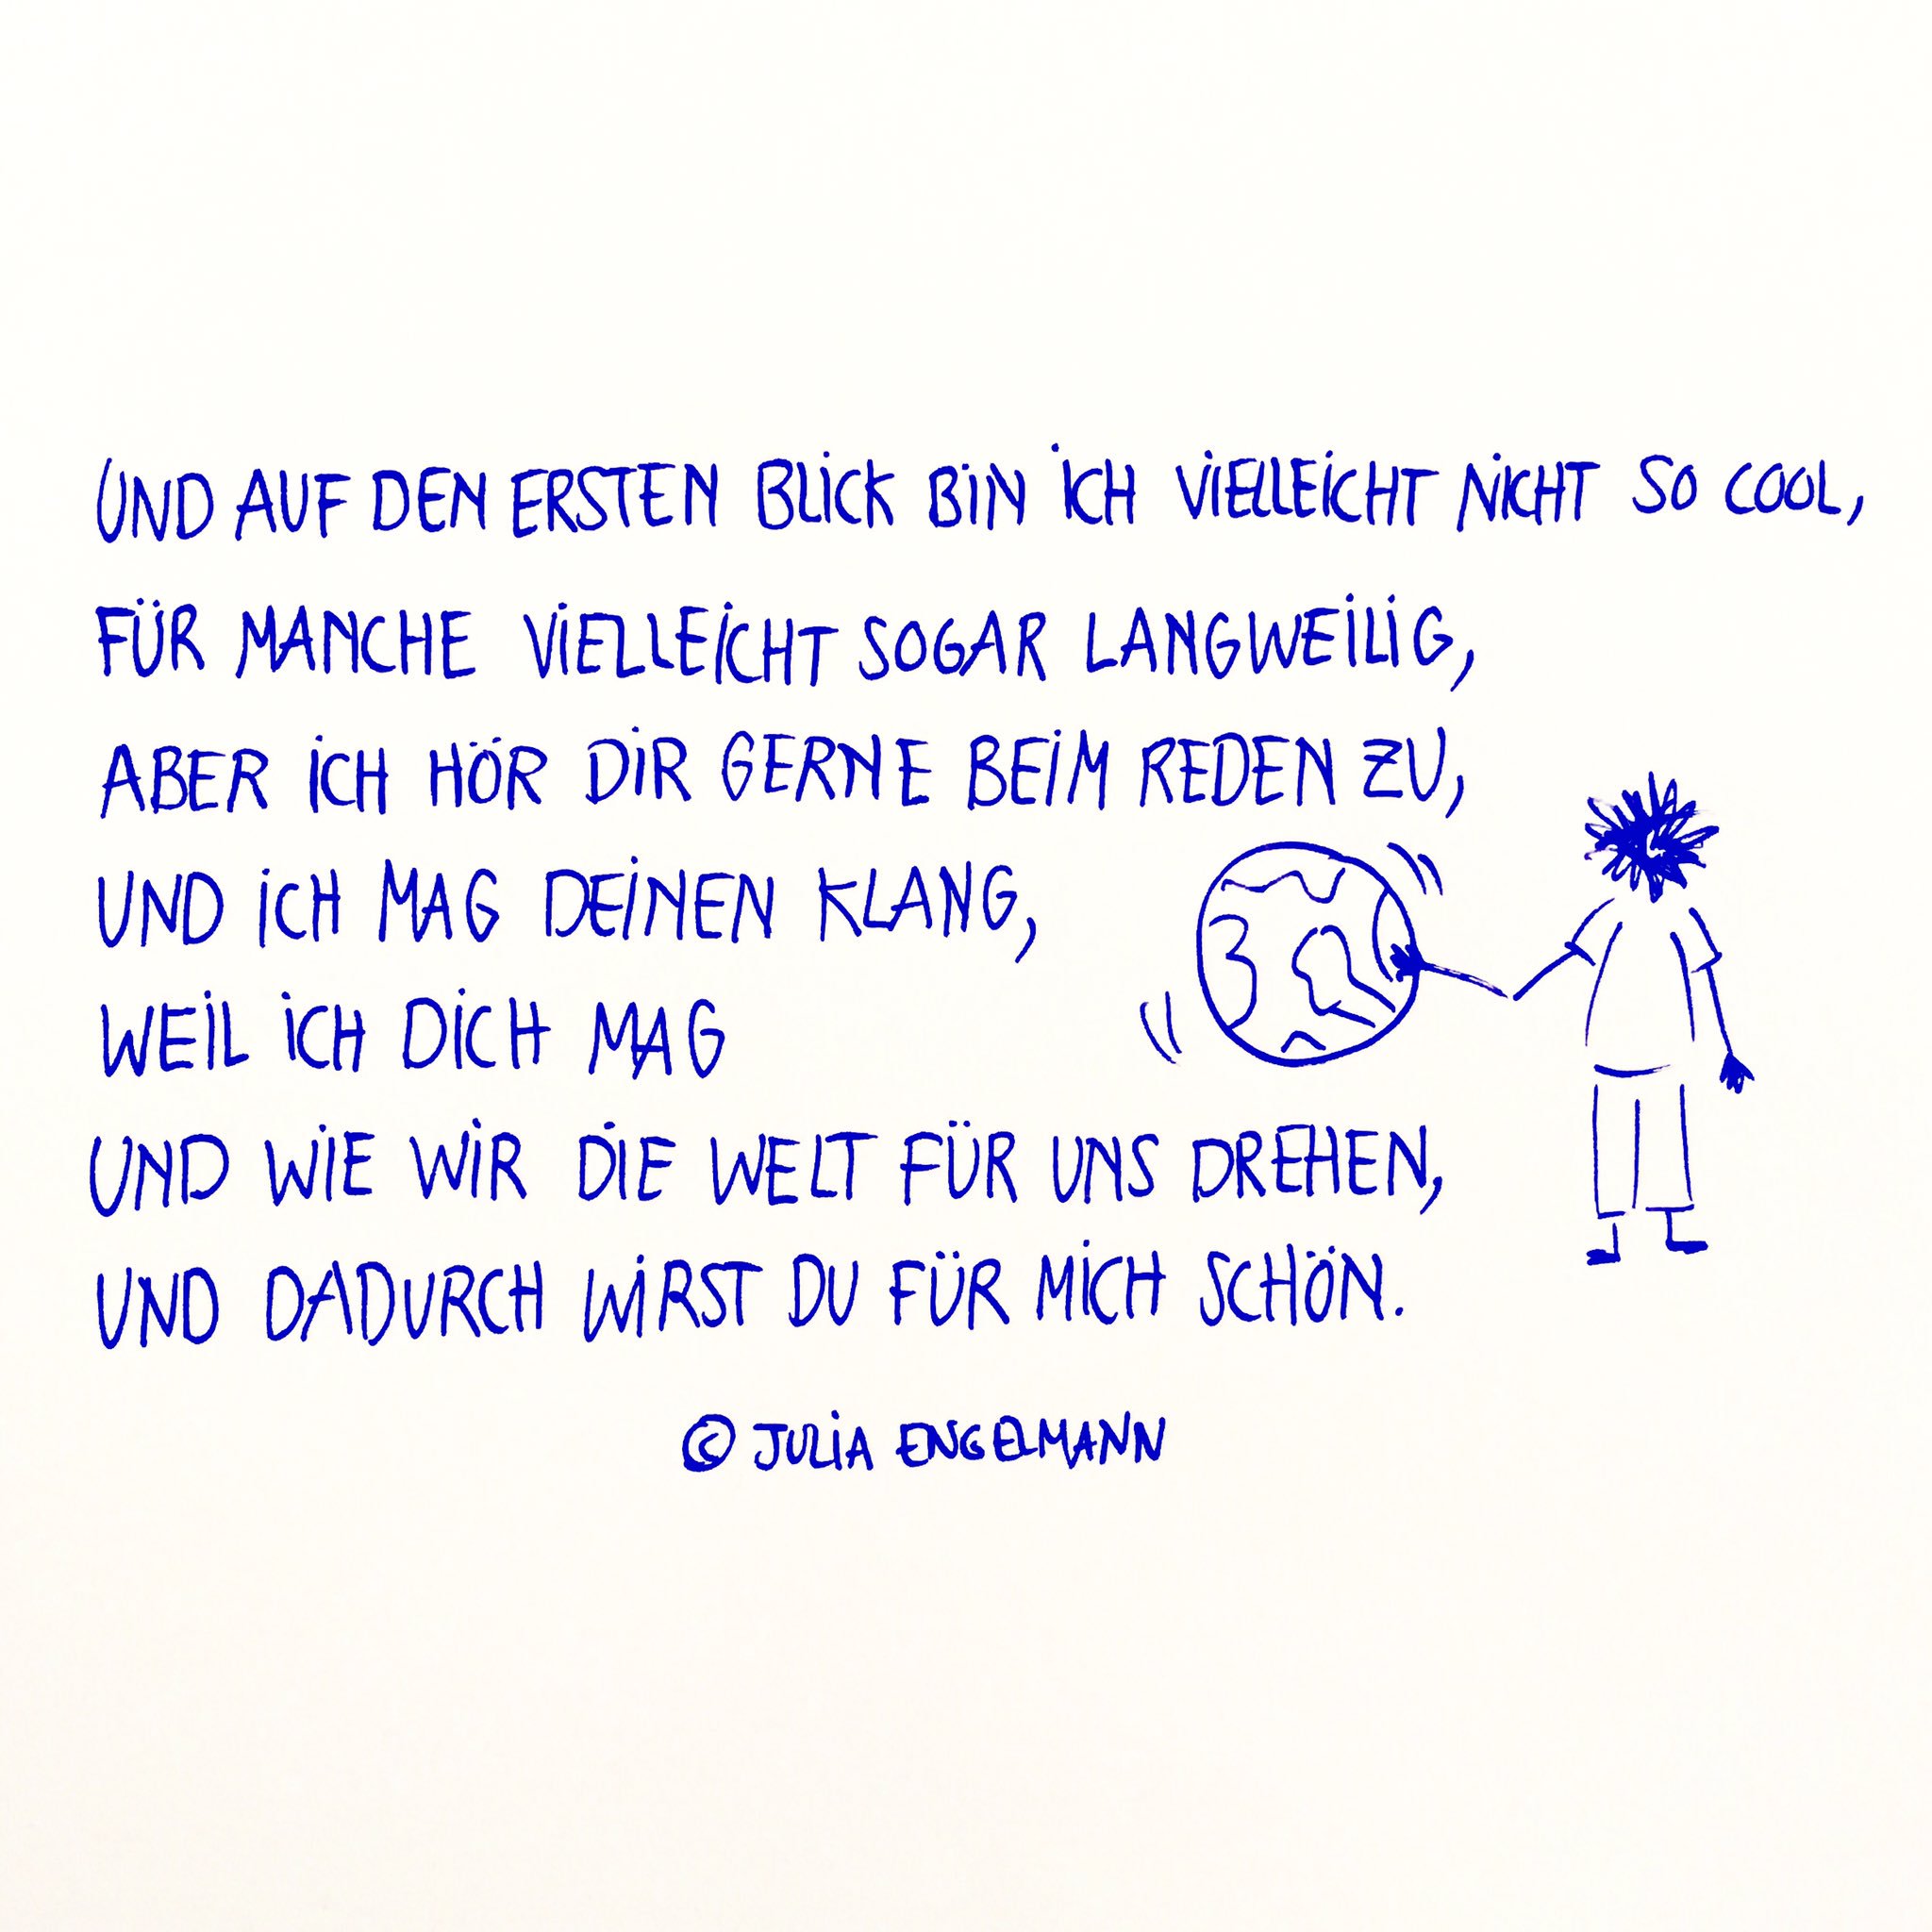 UND AUF DEN ERSTEN BLICK BIN ICH VIELLEICHT NICHT SO COOL,
FÜR MANCHE VIELLEICHT SOGAR LANGWEILIG,
ABER ICH HÖR DIR GERNE BEIM REDEN ZU,
UND ICH MAG DEINEN KLANG,
WEIL ICH DICH MAG
UND WIE WIR DIE WELT FÜR UNS DREHEN,
UND DADURCH WIRST DU FÜR MICH SCHÖN.
© JULIA ENGELMANN